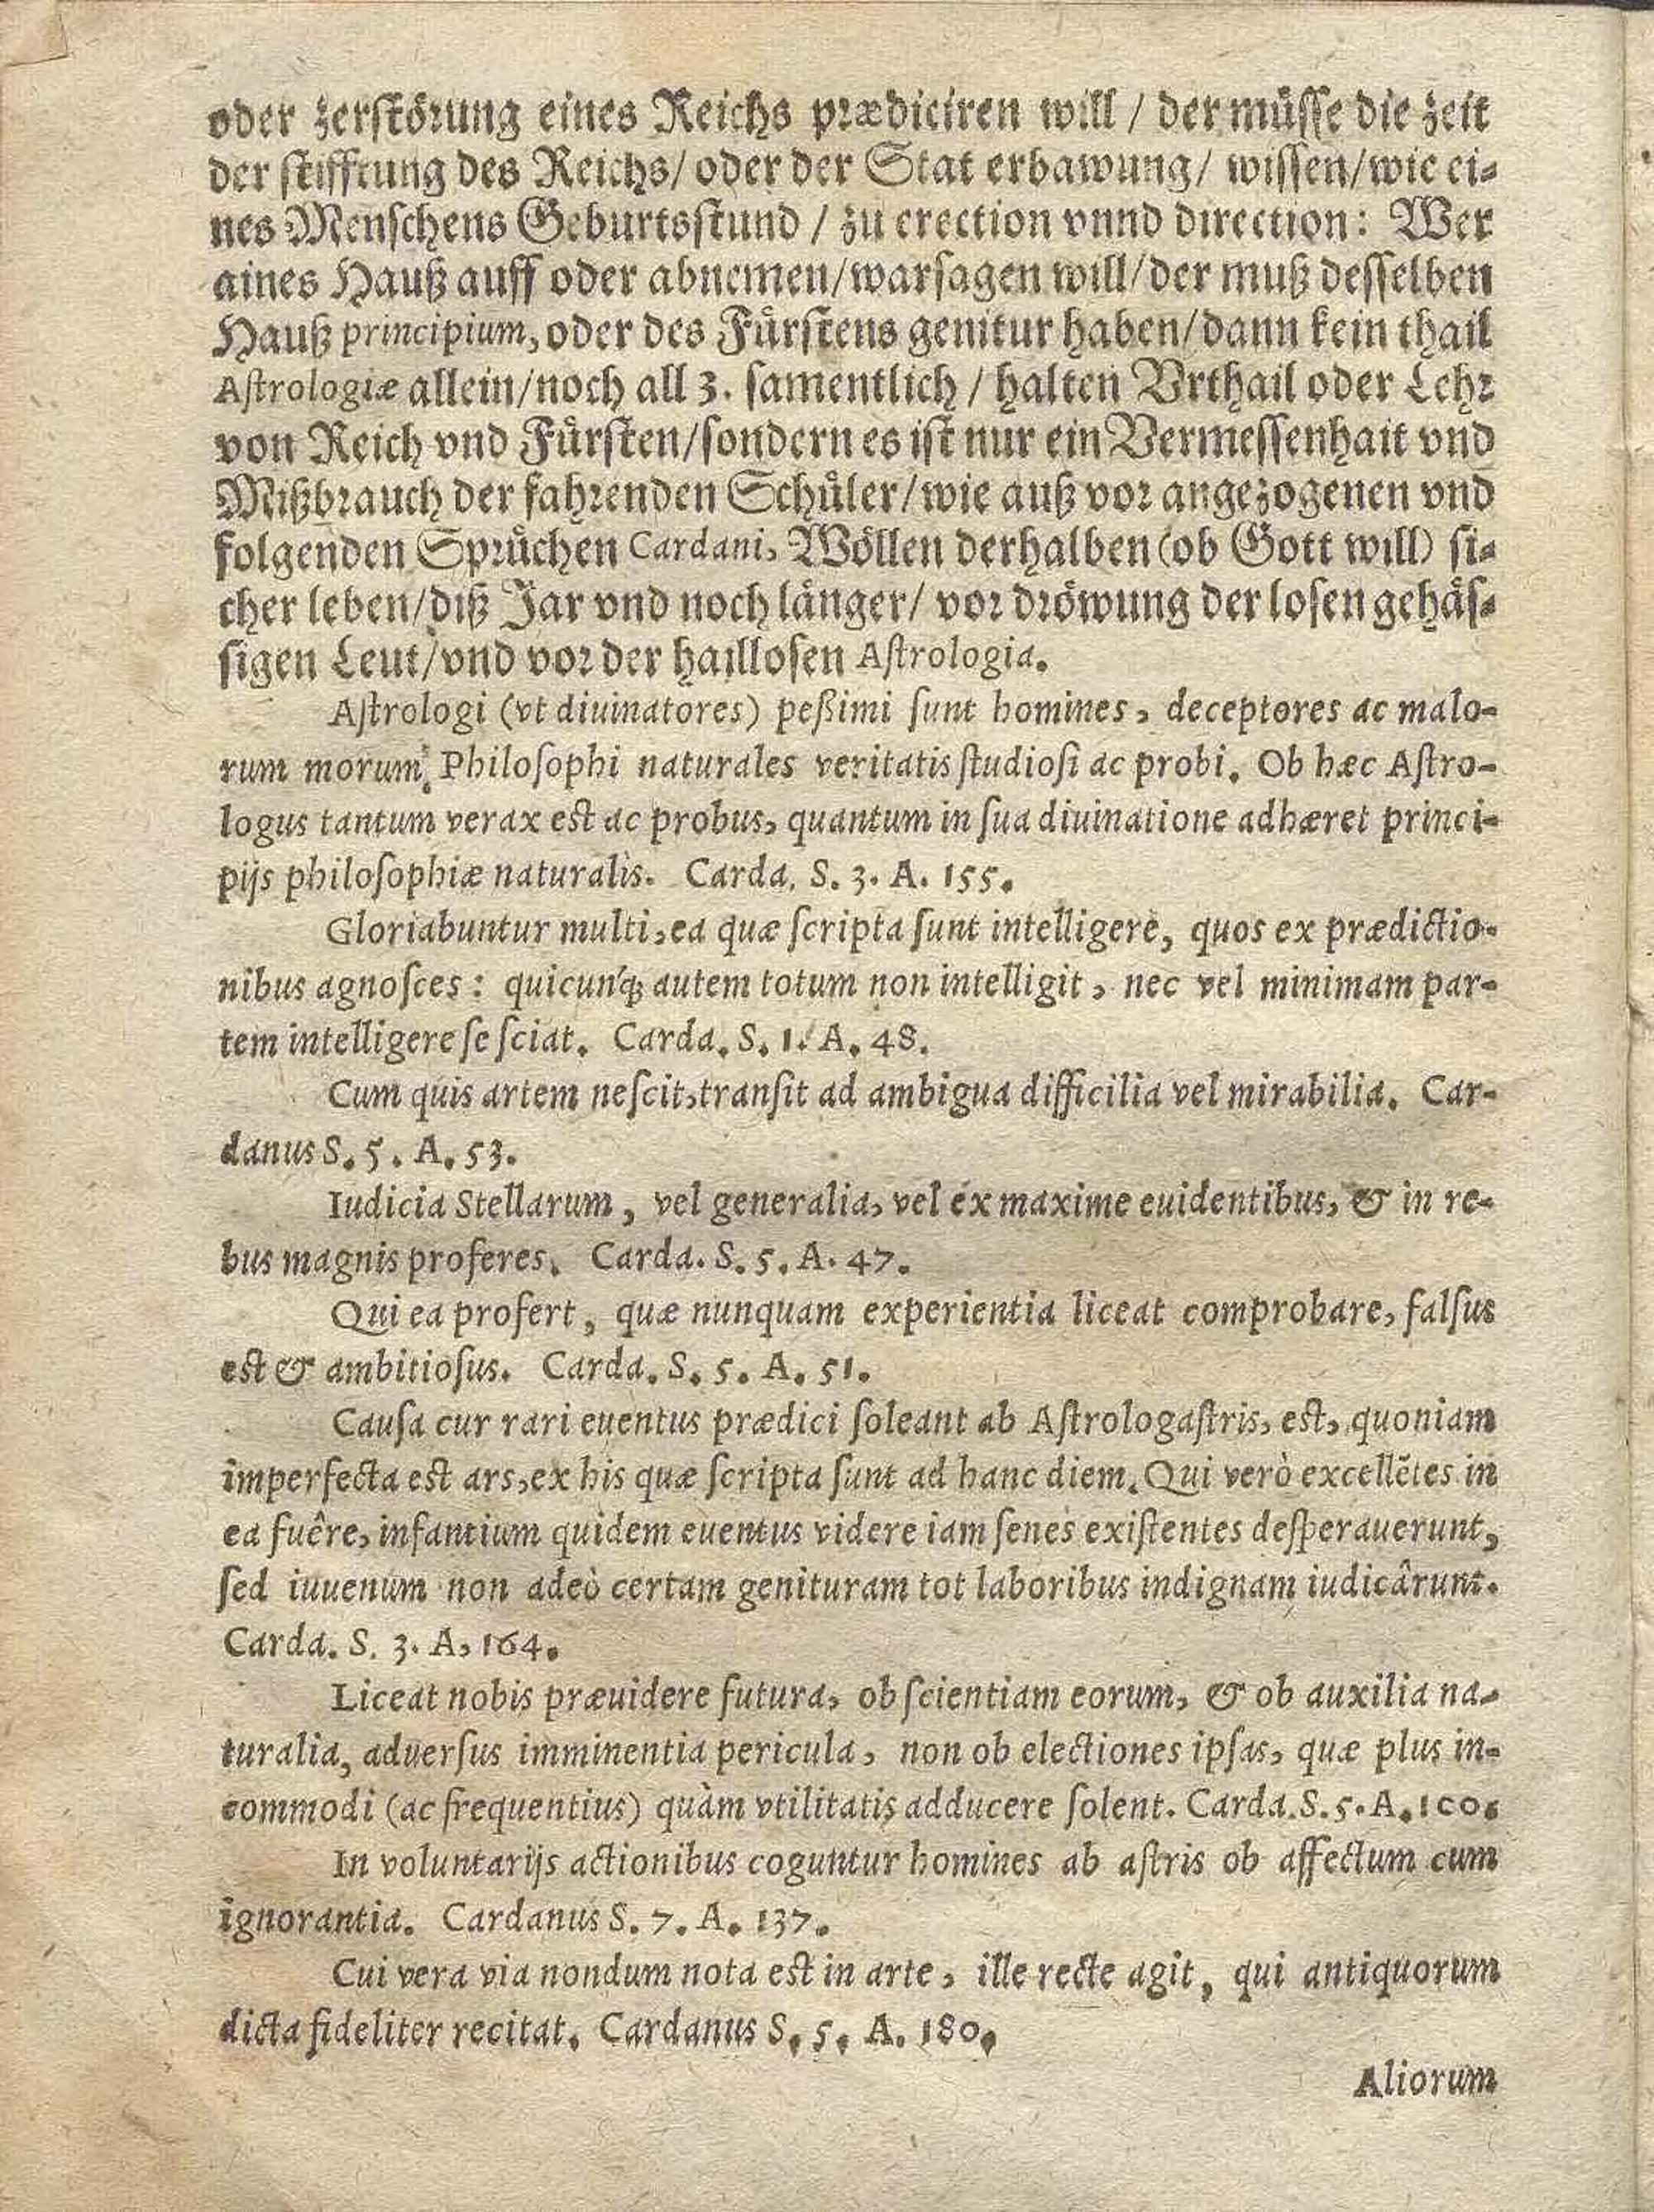 oder zerstörung eines Reichs prædiciren will / der müsse die zeit
der stifftung des Reichs/ oder der Stat erbawung/ wissen/wie ei-
nes Menschens Geburtsstund / zu erection vnnd direction: Wer
aines Hauß auff oder abnemen/warsagen will/der muß desselben
Hauß principium, oder des Fürstens genitur haben/dann kein thail
Astrologiæ allein/noch all 3. samentlich / halten Vrthail oder Lehr
von Reich vnd Fürsten/sondern es ist nur ein Vermessenhait vnd
Mißbrauch der fahrenden Schüler/wie auß vor angezogenen vnd
folgenden Sprüchen Cardani, Wöllen derhalben (ob Gott will) si-
cher leben/diß Jar vnd noch länger/ vor dröwung der losen gehäs-
sigen Leut/vnd vor der haillosen Astrologia.
Astrologi (vt diuinatores) peßimi sunt homines, deceptores ac malo-
rum morum. Philosophi naturales veritatis studiosi ac probi. Ob hæc Astro-
logus tantum verax est ac probus, quantum in sua diuinatione adhæret princi-
pijs philosophiæ naturalis. Carda. S. 3. A. 155.
Gloriabuntur multi, ea quæ scripta sunt intelligere, quos ex prædictio-
nibus agnosces: quicunq́; autem totum non intelligit, nec vel minimam par-
tem intelligere se sciat. Carda. S. 1. A. 48.
Cum quis artem nescit, transit ad ambigua difficilia vel mirabilia. Car-
danus S. 5. A. 53.
Iudicia Stellarum, vel generalia, vel ex maxime euidentibus, & in re-
bus magnis proferes. Carda. S. 5. A. 47.
Qui ea profert, quæ nunquam experientia liceat comprobare, falsus
est & ambitiosus. Carda. S. 5. A. 51.
Causa cur rari euentus prædici soleant ab Astrologastris, est, quoniam
imperfecta est ars, ex his quæ scripta sunt ad hanc diem. Qui verò excellẽtes in
ea fuêre, infantium quidem euentus videre iam senes existentes desperauerunt,
sed iuuenum non adeò certam genituram tot laboribus indignam iudicârunt.
Carda. S. 3. A, 164.
Liceat nobis præuidere futura, ob scientiam eorum, & ob auxilia na-
turalia, aduersus imminentia pericula, non ob electiones ipsas, quæ plus in-
commodi (ac frequentius) quàm vtilitatis adducere solent. Carda. S. 5. A. 100.
In voluntarijs actionibus coguntur homines ab astris ob affectum cum
ignorantia. Cardanus S. 7. A. 137.
Cui vera via nondum nota est in arte, ille recte agit, qui antiquorum
dicta fideliter recitat. Cardanus S. 5. A. 180.
Aliorum